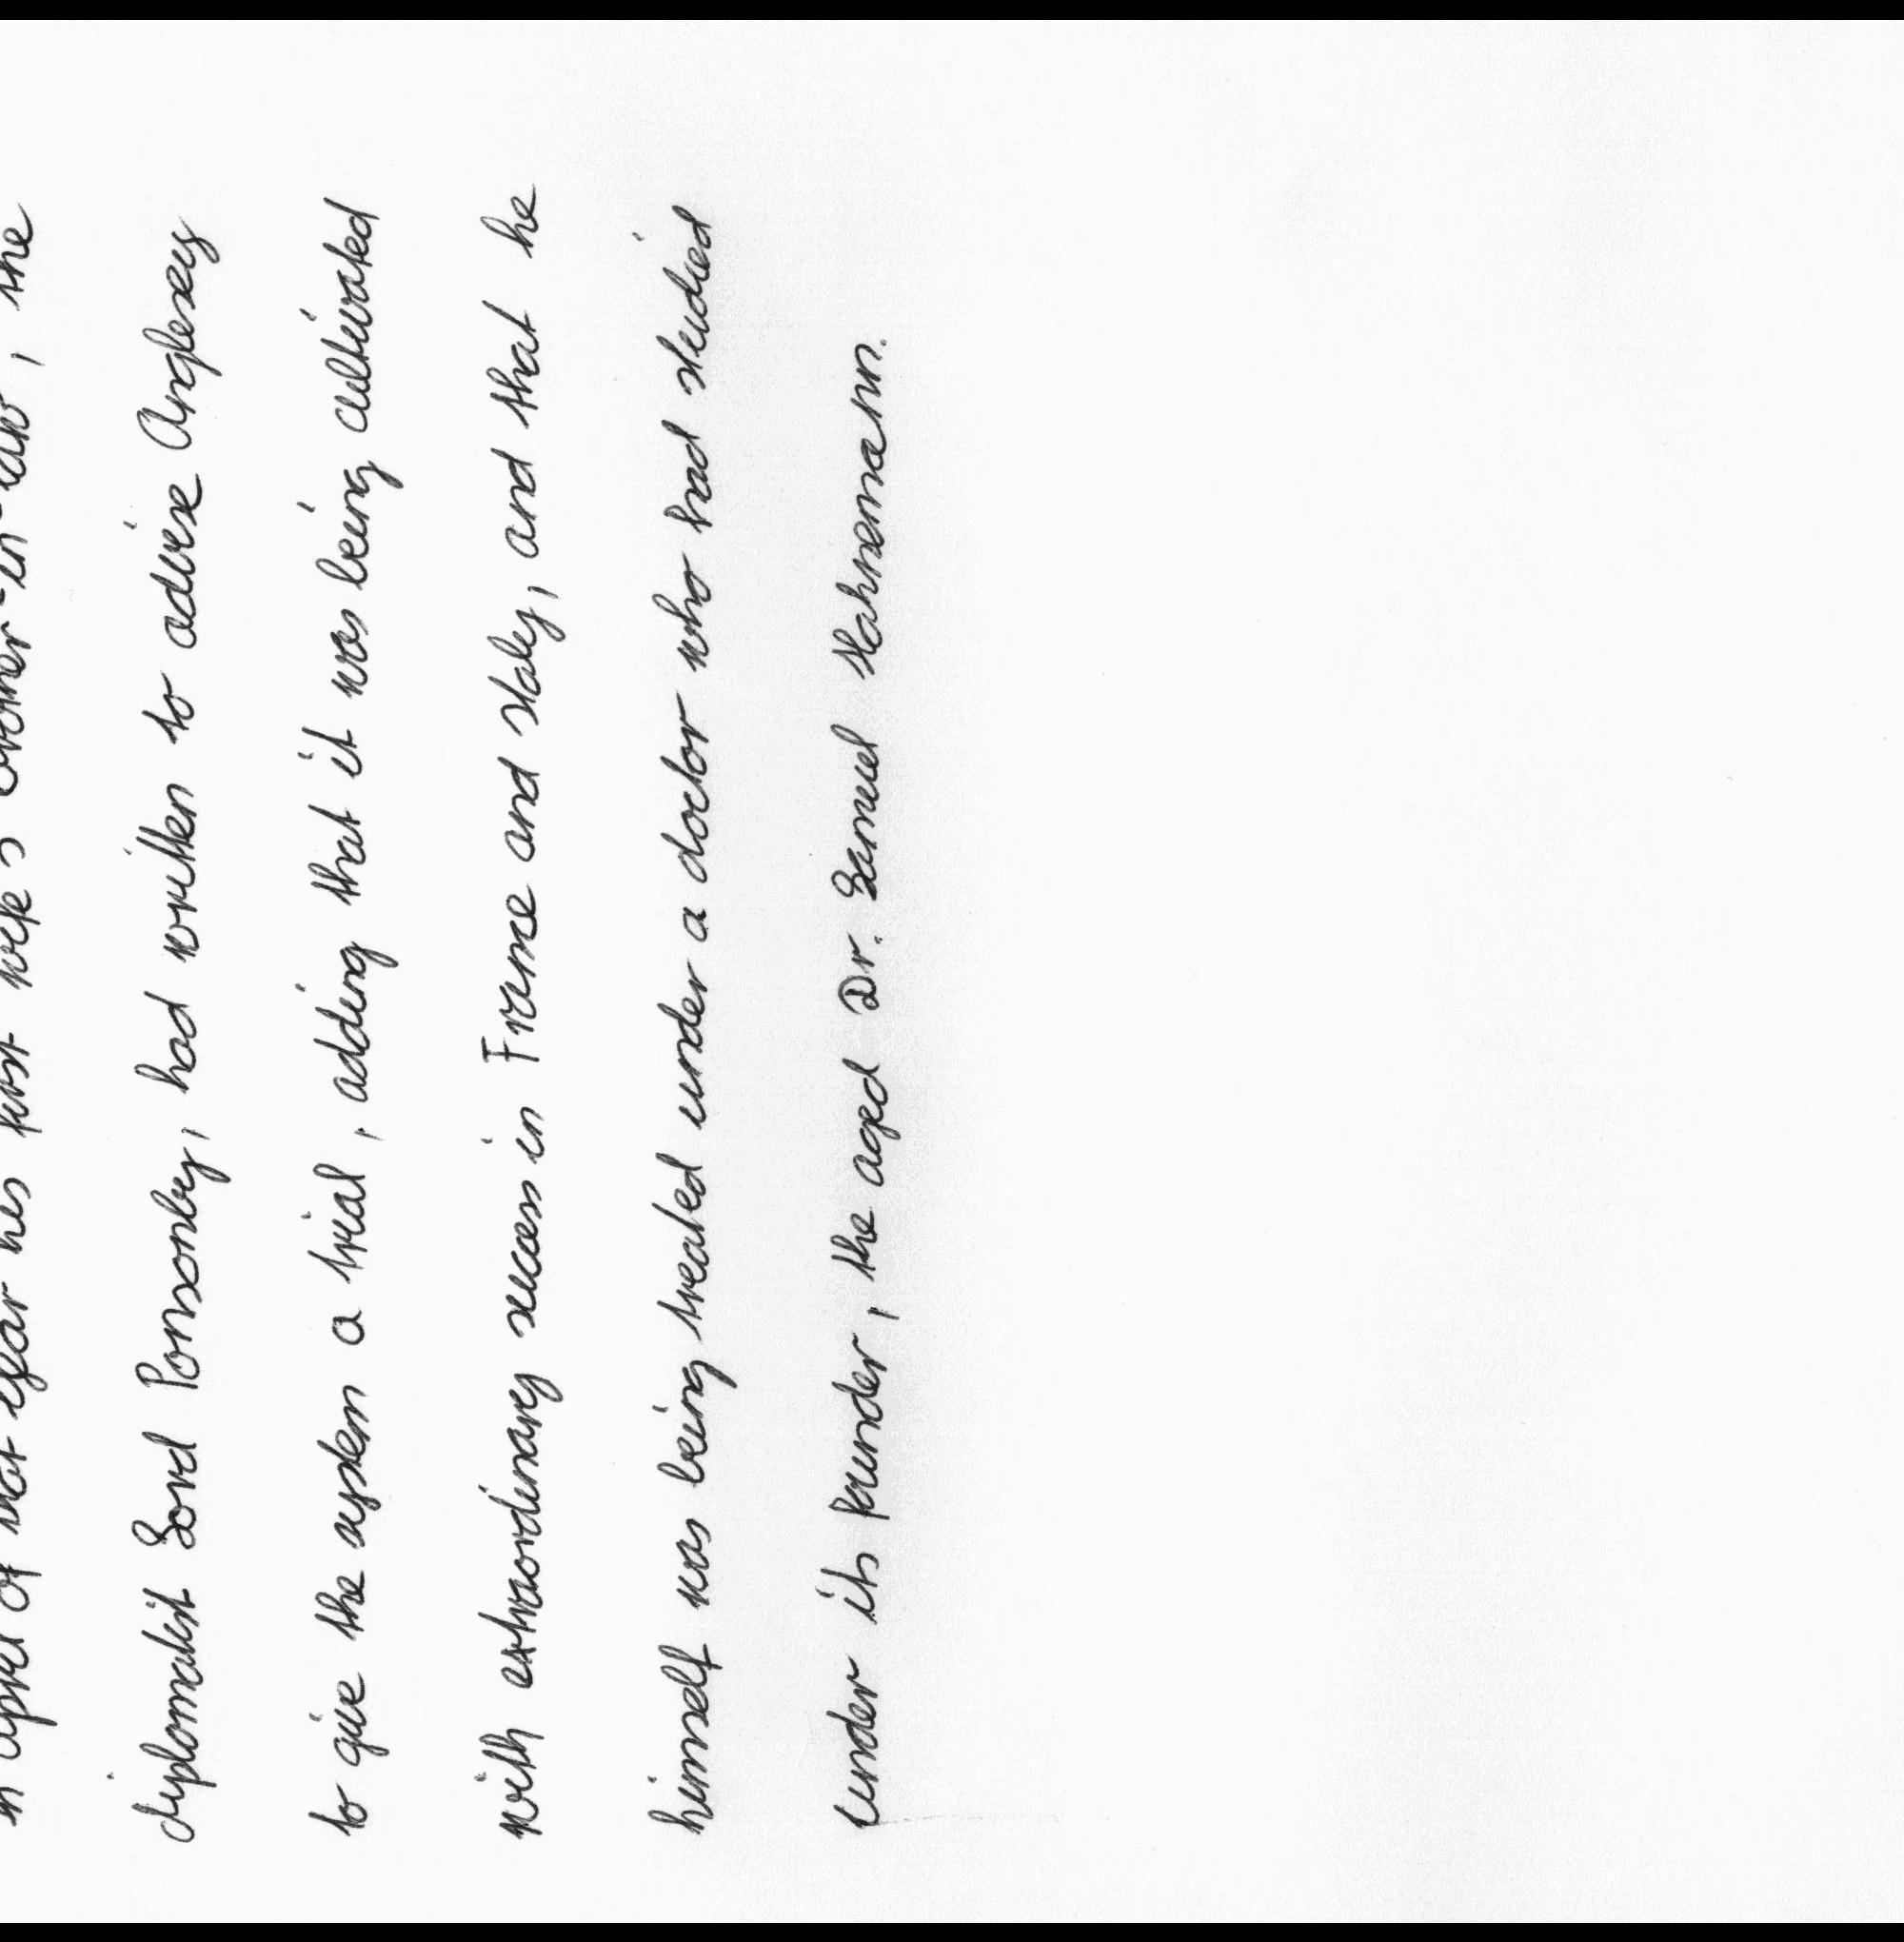 in April of that year his first wife's brother-in-law, the
diplomatist Lord Ponsonby, had written to advise Anglesey
to give the system a trial, adding that it was being cultivated
with extraordinary success in France and Italy, and that he
himself was being treated under a doctor who had studied
under its founder, the aged Dr. Samuel Hahnemann.